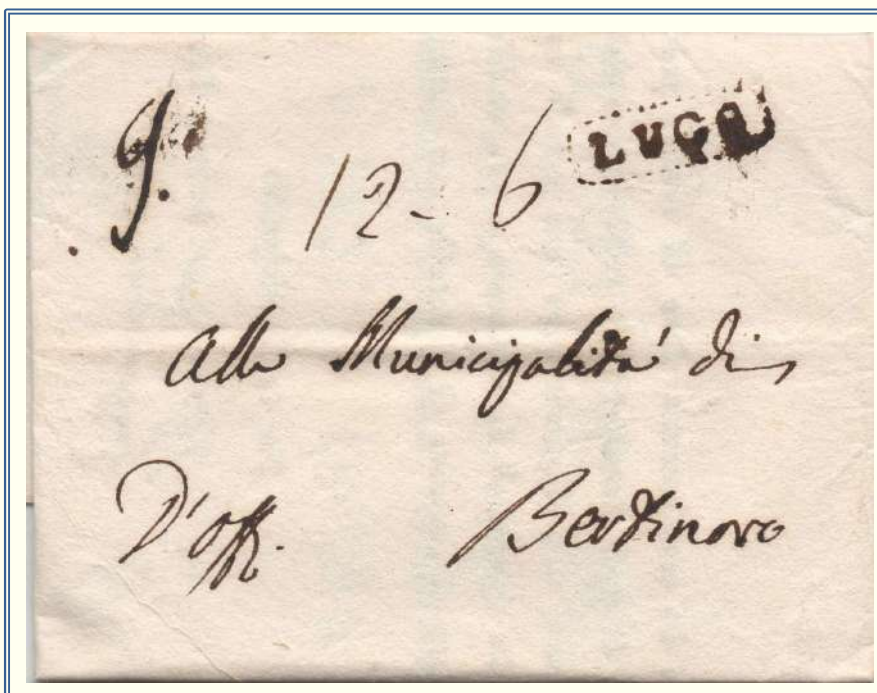 9.
12-6
LUGO
Alla Municipalità di
D'off. Bertinoro